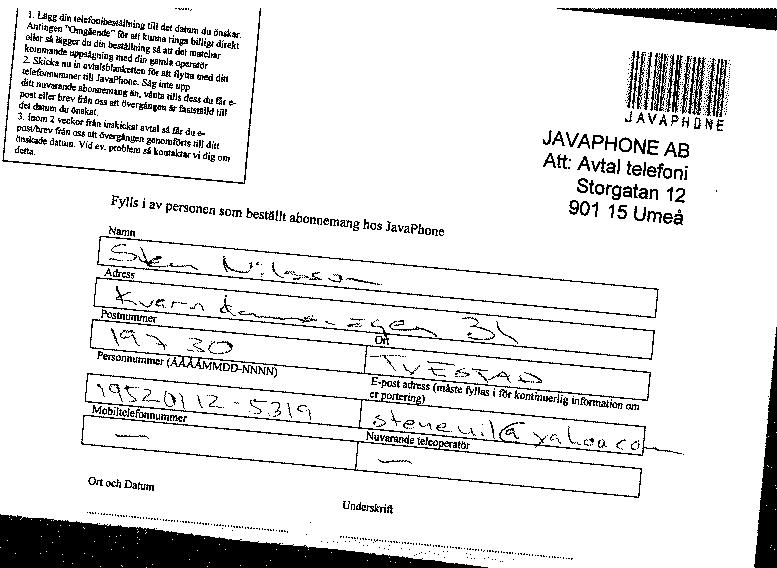 1. Lägg din telefonibeställning till det datum du önskar.
Antingen "Omgående" för att kunna ringa billigt direkt
eller så lägger du din beställning så att det matchar
kommande uppsägning med din gamla operatör
2. Skicka nu in avtalsblanketten för att flytta med ditt
telefonnummer till JavaPhone. Säg inte upp
ditt nuvarande abonnemang än, vänta tills dess du får e-
post eller brev från oss att övergången är fastställd till
det datum du önskat.
3. Inom 2 veckor från inskickat avtal så får du e-
post/brev från oss att övergången genomförts till ditt
önskade datum. Vid ev. problem så kontaktar vi dig om
detta.
JAVAPHONE
JAVAPHONE AB
Att: Avtal telefoni
Storgatan 12
901 15 Umeå
Fylls i av personen som beställt abonnemang hos JavaPhone
Namn
Sten Nilsson
Adress
31
Postnummer
Ort
197 30
Personnummer (ÅÅÅÅMMDD-NNNN)
E-post adress (måste fyllas i för kontinuerlig information om
er portering)
19520112-5319
Mobiltelefonnummer
Nuvarande teleoperatör
—
—
Ort och Datum
Underskrift